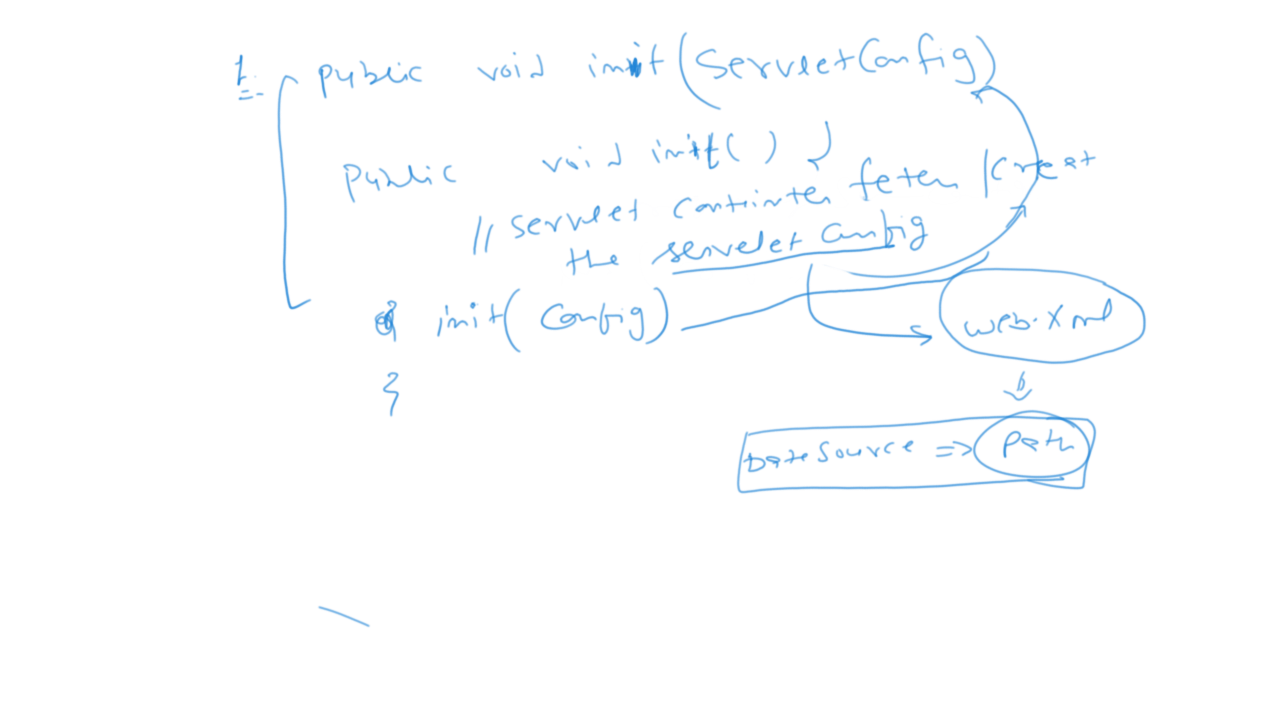 1. public void init(ServletConfig)
public void init() {
// servlet container fetch / creat
the servelet config
init(config)
}
web.xml
DataSource => path